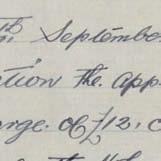 th September
ction the App
arge. of £12;